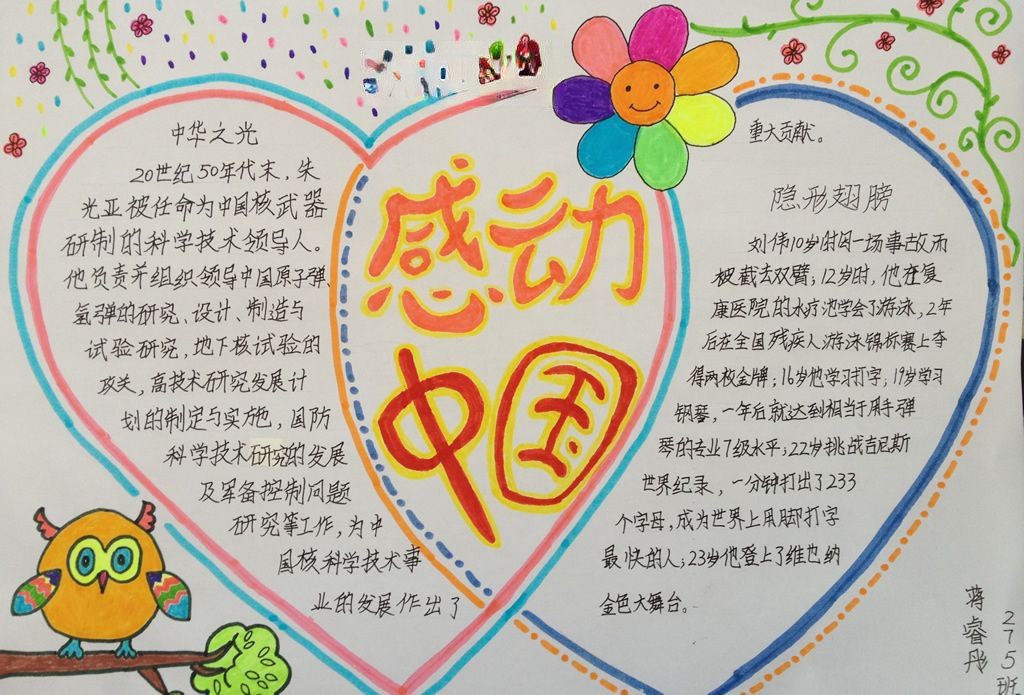 中华之光
20世纪50年代末，朱
光亚被任命为中国核武器
研制的科学技术领导人。
他负责并组织领导中国原子弹、
氢弹的研究、设计、制造与
试验研究，地下核试验的
攻关，高技术研究发展计
划的制定与实施，国防
科学技术研究的发展
及军备控制问题
研究等工作，为中
国核科学技术事
业的发展作出了
感动
中国
重大贡献。
隐形翅膀
刘伟10岁时因一场事故而
被截去双臂；12岁时，他在复
康医院的水疗池学会了游泳，2年
后在全国残疾人游泳锦标赛上夺
得两枚金牌；16岁他学习打字；19岁学习
钢琴，一年后就达到相当于用手弹
琴的专业7级水平；22岁挑战吉尼斯
世界纪录，一分钟打出了233
个字母，成为世界上用脚打字
最快的人；23岁他登上了维也纳
金色大舞台。
275班
蒋睿彤